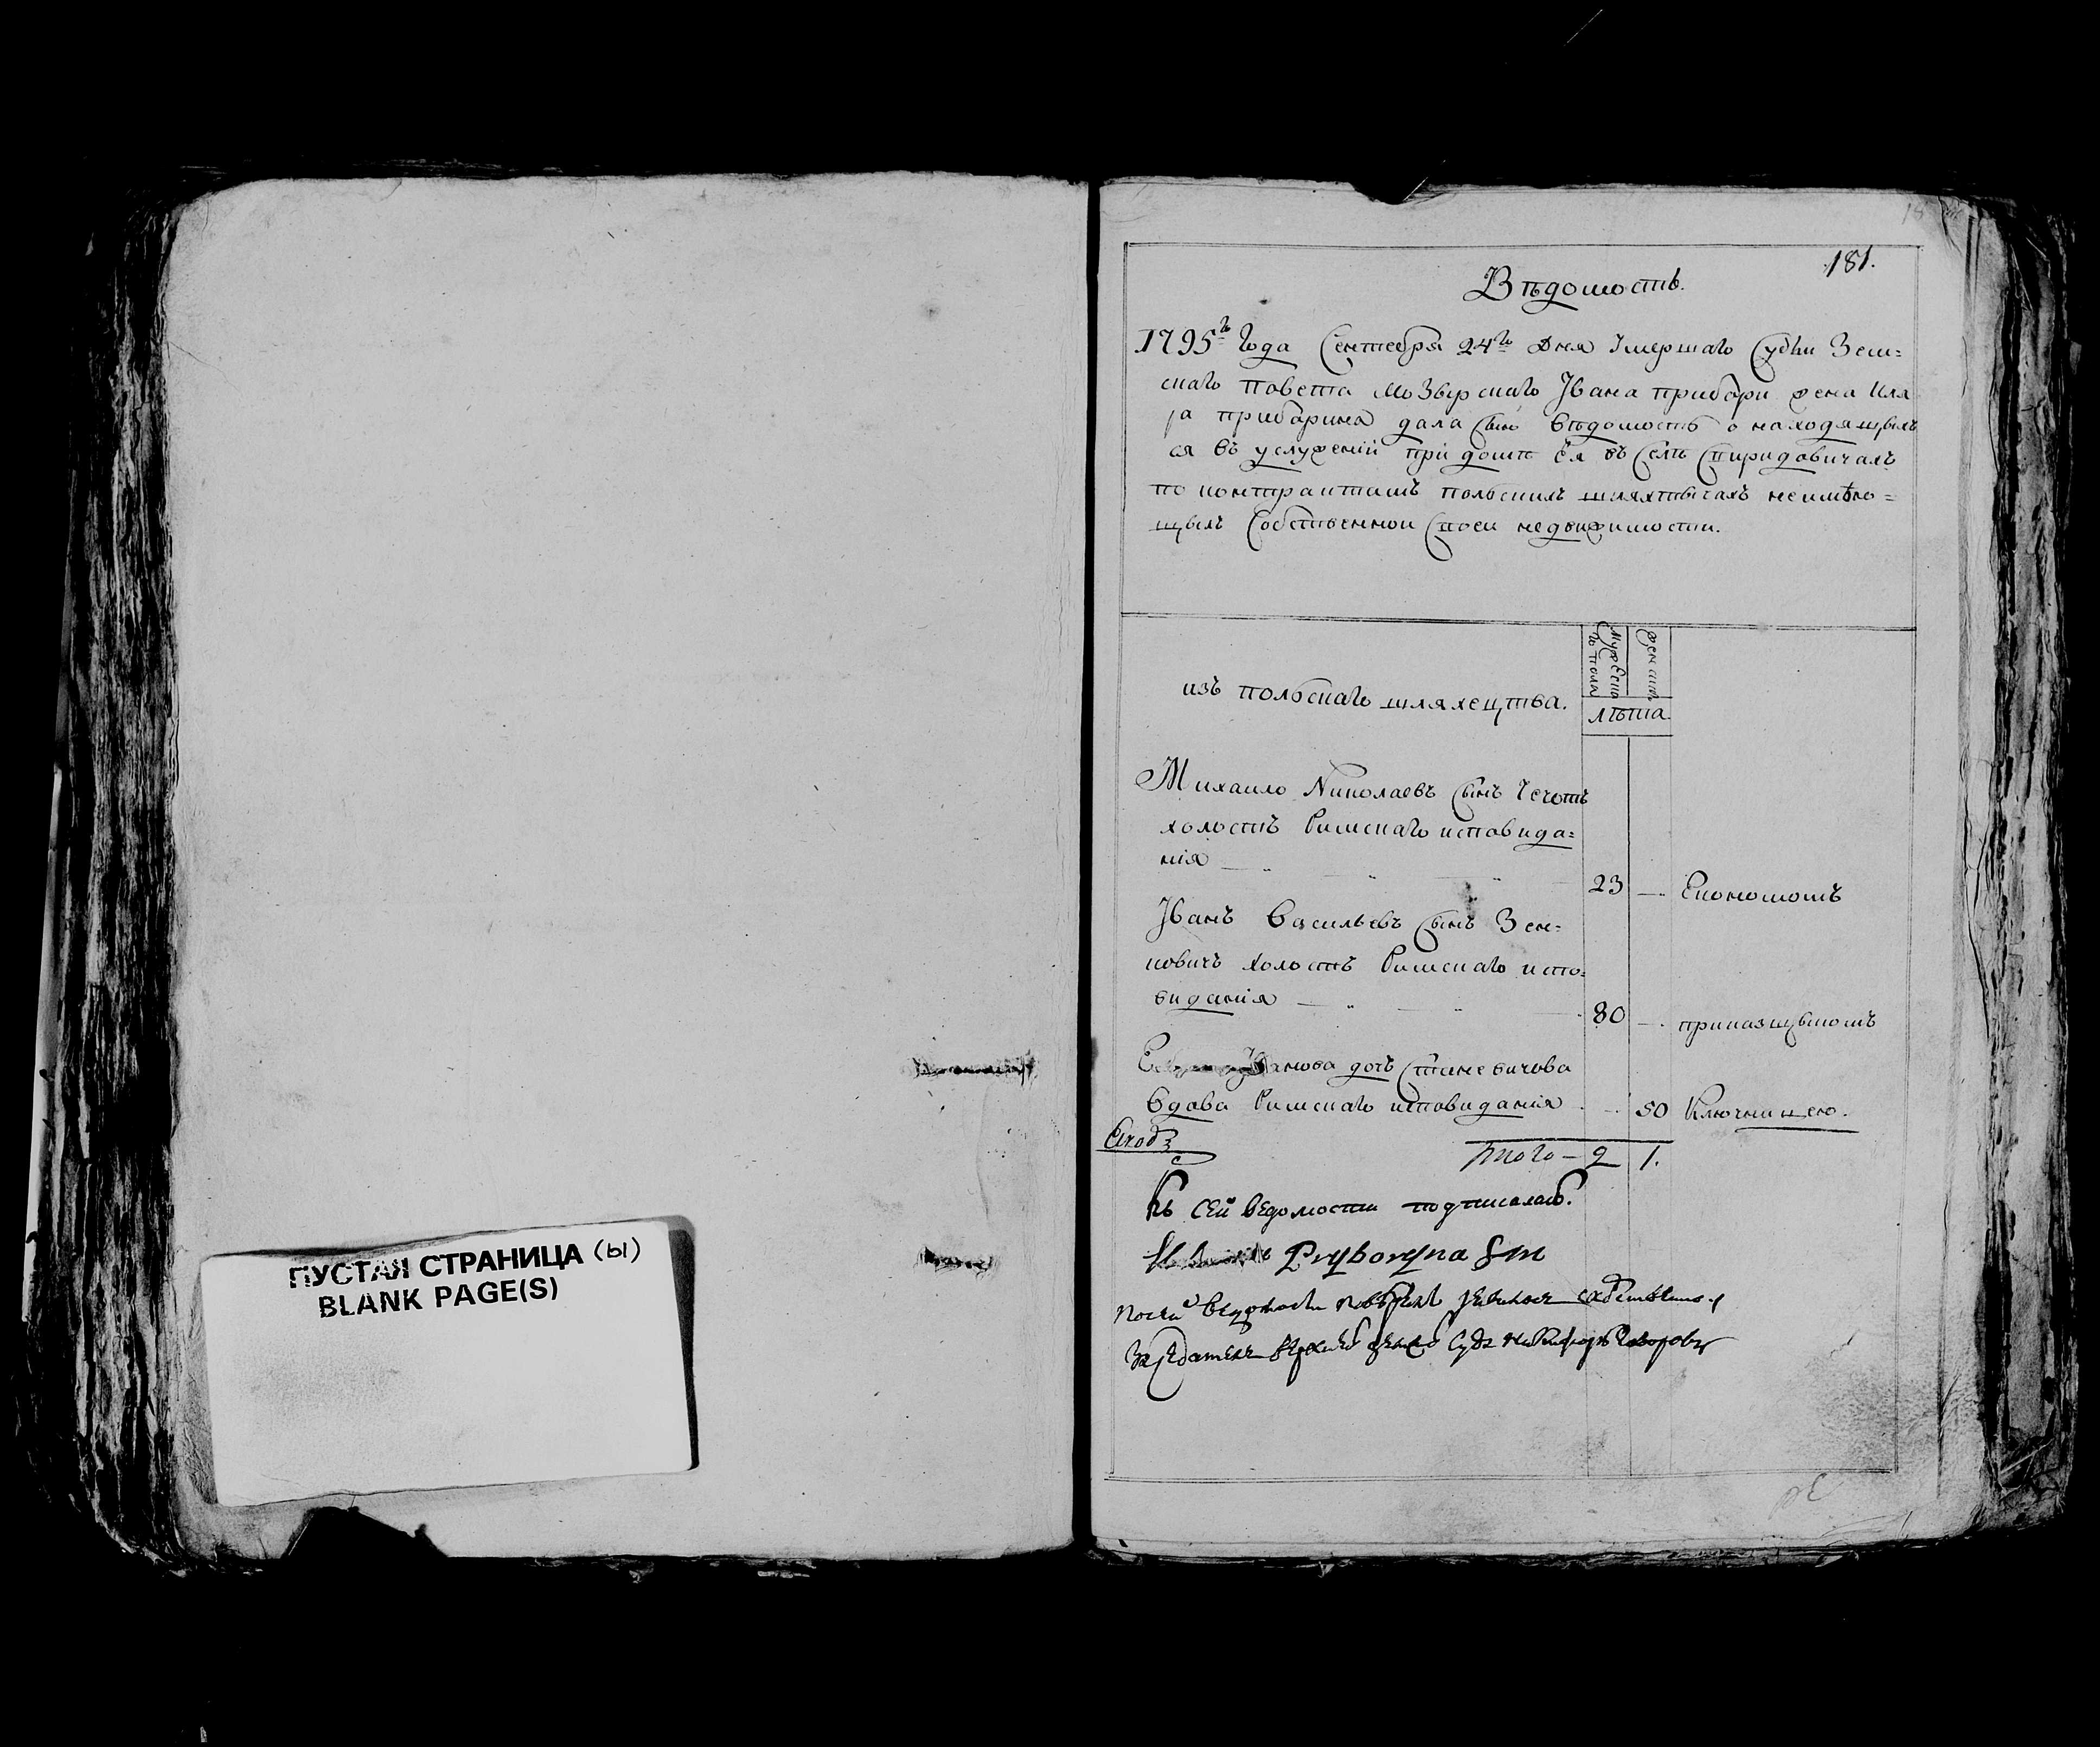 ПУСТАЯ СТРАНИЦА (ы)
BLANK PAGE(S)
181.
Вѣдомость.
1795го Года Сентебря 24го Дня Умершаго Судьи Зем=
скаго повета мозырскаго Iвана прибори жена
прибарина дала сью вѣдомость о находящыхъ
ся въ услужении при доме Ея въ Селѣ Спиридовичахъ
по контрактамъ польскихъ шляхтычахъ неимѣю=
щыхъ Собственной Своей недвижимости.
изъ польскаго шляхецтва.
Мужеска
го пола
женска
лѣта
Михаило Николаевъ Сынъ Чечотъ
холостъ Римскаго исповида=
нія
23 Економомъ
Iванъ Васильевъ Сынъ Зен=
ковичъ холостъ Римскаго испо=
виданія
80 приказщыкомъ
Iванова дочь Станевичова
вдова Римскаго исповиданія 50 Ключницею.
Итого – 2 1.
Къ сей ведомости подписалась.
Pryboryna